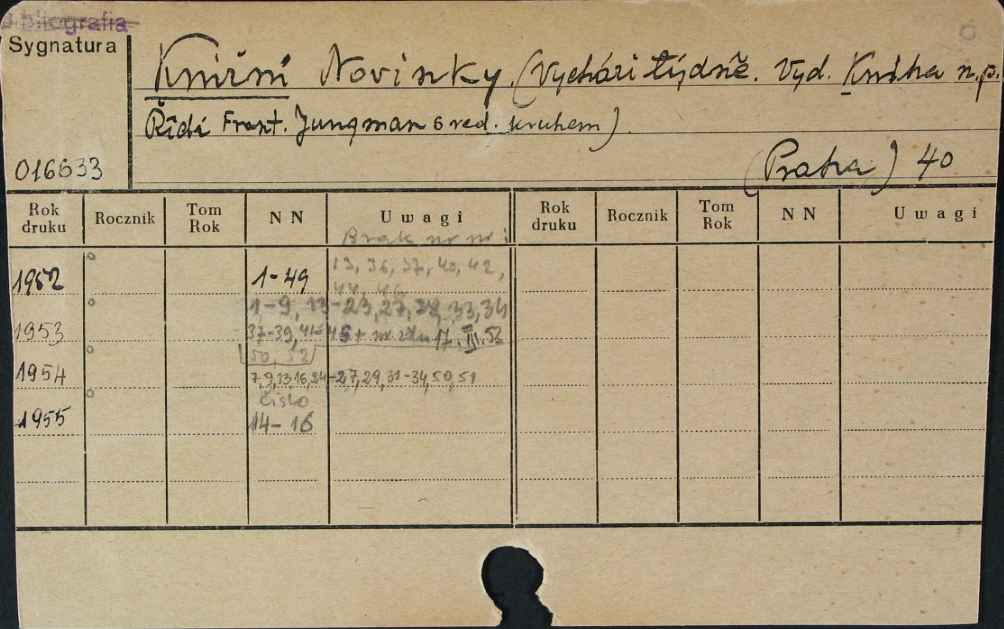 Bibliografia
Sygnatura
Knižní Novinky. (Vychází týdně. Vyd. Kniha n.p.
Řídí Frant. Jungman s red. kruhem).
016633
(Praha) 40
Rok druku Rocznik Tom Rok NN Uwagi Rok druku Rocznik Tom Rok NN Uwagi
Brak nr nr i
1952 1-49 13, 36, 37, 40, 42,
44, 46
1-9, 13-23, 27, 33, 34
1953 37-39, 41- 46 + nr. 17. III. 53
(50, 52)
1954 7,9,13 16,24-27,29,31-34,50,51
čislo
1955 14-16